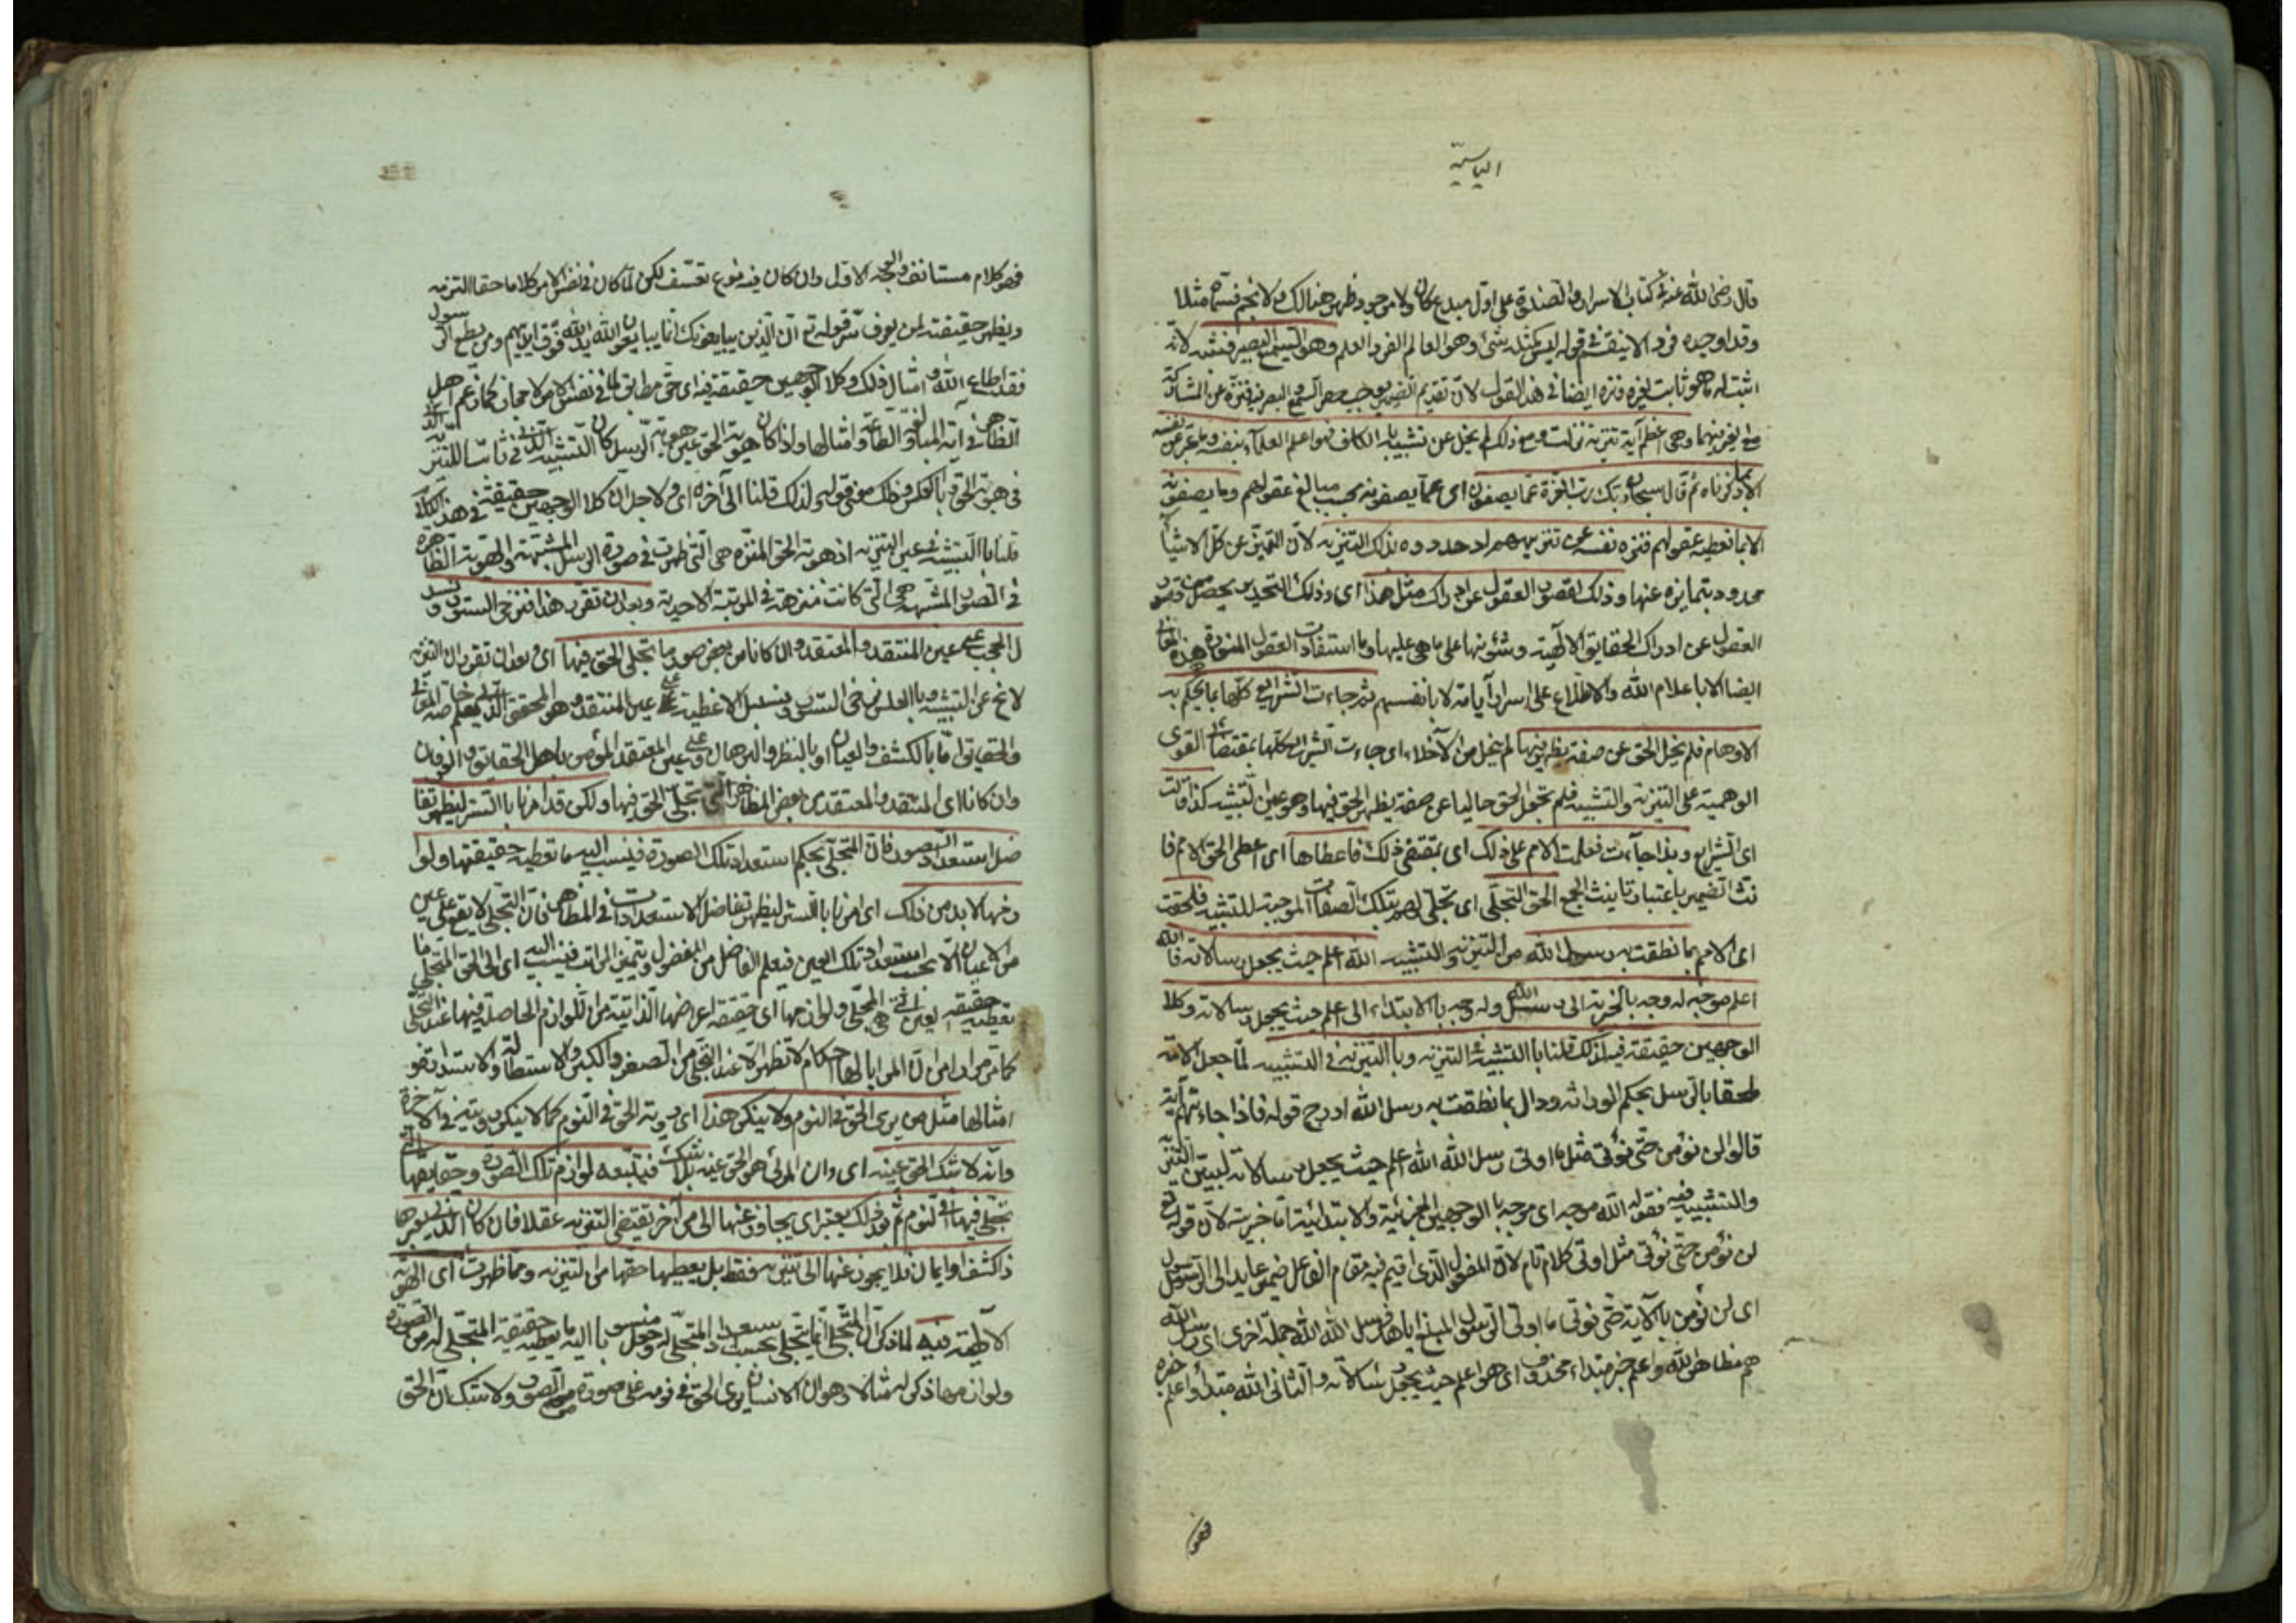 الياسية
قال رضى الله عنه فى كتاب الاسراء والصلوة على اول مبدع كان ولا موجود ظهر هنالك ولا نجم فسماه مثلا
وقد اوجده فردا لا ينقسم فى قوله ليس كمثله شئ وهو العالم الفرد العلم وهو السميع البصير فشبه لانه
اثبت له ما هو ثابت لغيره ونزه ايضا فى هذا القول لان تقديم الضمير يوجب حصر السمع والبصر فيه فنزه عن المشاركة
مع الغير فيهما وهى اعظم آية تنزيه نزلت ومع ذلك لم يخل عن تشبيه بالكاف فهو اعلم العلماء بنفسه وما عبر عن نفسه
الا بما ذكرناه ثم قال سبحان ربك رب العزة عما يصفون اى عما يصفونه بحسب مبالغ عقولهم وما يصفونه
الا بما تعطيه عقولهم فنزه نفسه عن تنزيههم اذ حددوه بذلك التنزيه لان المميز عن كل الاشياء
محدود بتمايزه عنها وذلك لقصور العقول عن ادراك مثل هذا اى وذلك التحديد يحصل من قصور
العقول عن ادراك الحقايق الالهية وشئونها على ما هى عليها وما استفادت العقول المنورة هذه
ايضا الا باعلام الله والاطلاع على اسرار آياته لا بانفسهم ثم جاءت الشرايع كلها بما يحكم به
الاوهام فلم يخل الحق عن صفة يظهر فيها لم يخل من الاخلاء اى جاءت الشرايع كلها بمقتضات القوى
الوهمية على التنزيه والتشبيه فلم تجعل الحق خاليا عن صفة يظهر الحق فيها وهو عين التشبيه كذا قالت
اى الشرايع وبذا جاءت فعلمت الامم على ذلك اى بمقتضى ذلك فاعطاها اى اعطى الحق الامم فا
نث الضمير باعتبار تانيث الجمع الحق التجلى اى تجلى لهم بتلك الصفات الموجبة للتشبيه فلحقت
اى الامم بما نطقت به رسول الله من التنزيه والتشبيه الله اعلم حيث يجعل رسالاته فالله
اعلم موجه له وجه بالخبرية الى رسل الله وله وجه بالابتداء الى اعلم حيث يجعل رسالاته وكلا
الوجهين حقيقة فيه لذلك قلنا بالتشبيه فى التنزيه وبالتنزيه فى التشبيه لما جعل الامة
ملحقا بالرسل بحكم الوراثه وقال بما نطقت به رسل الله ادرج قوله فاذا جاءتهم آية
قالوا لن نؤمن حتى نؤتى مثل ما اوتى رسل الله الله اعلم حيث يجعل رسالاته ليبين التنزيه
والتشبيه فيه فقوله الله موجه اى موجه بالوجهين الخبرية والابتدائية اما خبريته لان قوله تع
لن نؤمن حتى نؤتى مثل ما اوتى كلام تام لان المفعول الذى اقيم فيه مقام الفاعل ضمير عايد الى الرسول
اى لن نؤمن بالآية حتى نؤتى ما اوتى الرسول المبلغ اياها فرسل الله الله جملة اخرى اى رسل الله
هم مظاهر الله واعلم خبر مبتداء محذوف اى هو اعلم حيث يجعل رسالاته والثانى الله مبتدأ واعلم خبره
فهو
فهو كلام مستانف والوجه الاول وان كان فيه نوع تعسف لكن لما كان فى نفس الامر كلاما حقا التزمه
ويظهر حقيقته لمن يعرف سر قوله تع ان الذين يبايعونك انما يبايعون الله يد الله فوق ايديهم ومن يطع الرسول
فقد اطاع الله وامثال ذلك وكلا الوجهين حقيقة فيه اى حق مطابق لما فى نفس الامر لا مجاز كما زعم اهل
الظاهر فى آية المبايعة والطاعة وامثالها واذا كان هوية الحق عين هوية الرسل كان التشبيه الذى فى ثابتا للتنزيه الذى
فى هوية الحق وبالعكس وذلك معنى قوله ولذلك قلنا الى آخره اى ولاجل ان كلا الوجهين حقيقة فى هذا الكلام
قلنا بالتشبيه فى عين التنزيه اذ هوية الحق المنزه هى التى ظهرت فى صورة الرسل المشبهة والهوية الظاهرة
فى الصور المشبهه هى التى كانت منزهة فى المرتبة الاحدية وبعد ان تقرر هذا فنرخى الستور ونسد
ل الحجب على عين المنتقد والمعتقد وان كانا من بعض صور ما تجلى الحق فيها اى وبعد ان تقرر ان التنزيه
لا يخ عن التشبيه وبالعكس نرخى الستور ونسدل الاغطية على عين المنتقد وهو المحقق
والحقايق اما بالكشف والعيان او بالنظر والبرهان وعلى عين المعتقد المؤمن باهل الحقايق والعرفان
وان كانا اى المنتقد والمعتقد من بعض المظاهر التى تجلى الحق فيها ولكن قد امرنا بالستر ليظهر تفا
ضل استعداد الصور فان المتجلى بحكم استعداد تلك الصورة فينسب اليه ما تعطيه حقيقتها ولوا
زمها لا بد من ذلك اى امرنا بالستر ليظهر تفاضل الاستعدادات فى المظاهر فان التجلى لا يقع على عين
من الاعيان الا بحسب استعداد تلك العين فيعلم الفاضل من المفضول ويتميز المراتب فينسب اليه اى الى الحق المتجلى ما
تعطيه حقيقة العين التى هى المجلى ولوازمها اى حقيقة اعراضها الذاتية من اللوازم الحاصلة فيها عند التجلى
كما مر مرارا من ان المرايا لها احكام لا تظهر الا عند التجلى من الصغر والكبر والاستطالة والاستدارة و
امثالها مثل من يرى الحق فى النوم ولا ينكر هذا اى رؤية الحق فى النوم كما لا ينكر رؤيته فى الآخرة
وانه لا شك الحق عينه اى وان المرئى هو الحق عينه بلا شك فتتبعه لوازم تلك الصورة وحقايقها التى
تجلى فيها فى النوم ثم بعد ذلك يعبر اى يجاوز عنها الى امر آخر يقتضى التنزيه عقلا فان كان الذى يعبرها
ذا كشف او ايمان فلا يجوز عنها الى تنزيه فقط بل يعطيها حقها من التنزيه ومما ظهرت اى الهوية
الالهية فيه لما ذكر ان المتجلى انما يتجلى بحسب استعداد المتجلى له وجعل منسوبا اليه ما يعطيه حقيقة المتجلى له من الصورة
ولوازمها ذكر له مثالا وهو ان الانسان يرى الحق فى نومه على صورة من الصور ولا يشك ان الحق